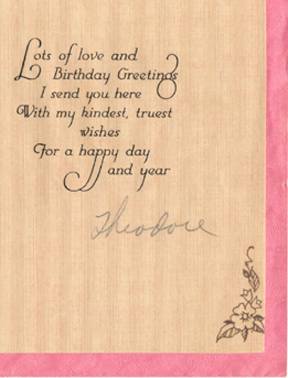 Lots of love and
Birthday Greetings
I send you here
With my kindest, truest
wishes
For a happy day
and year
Theodore